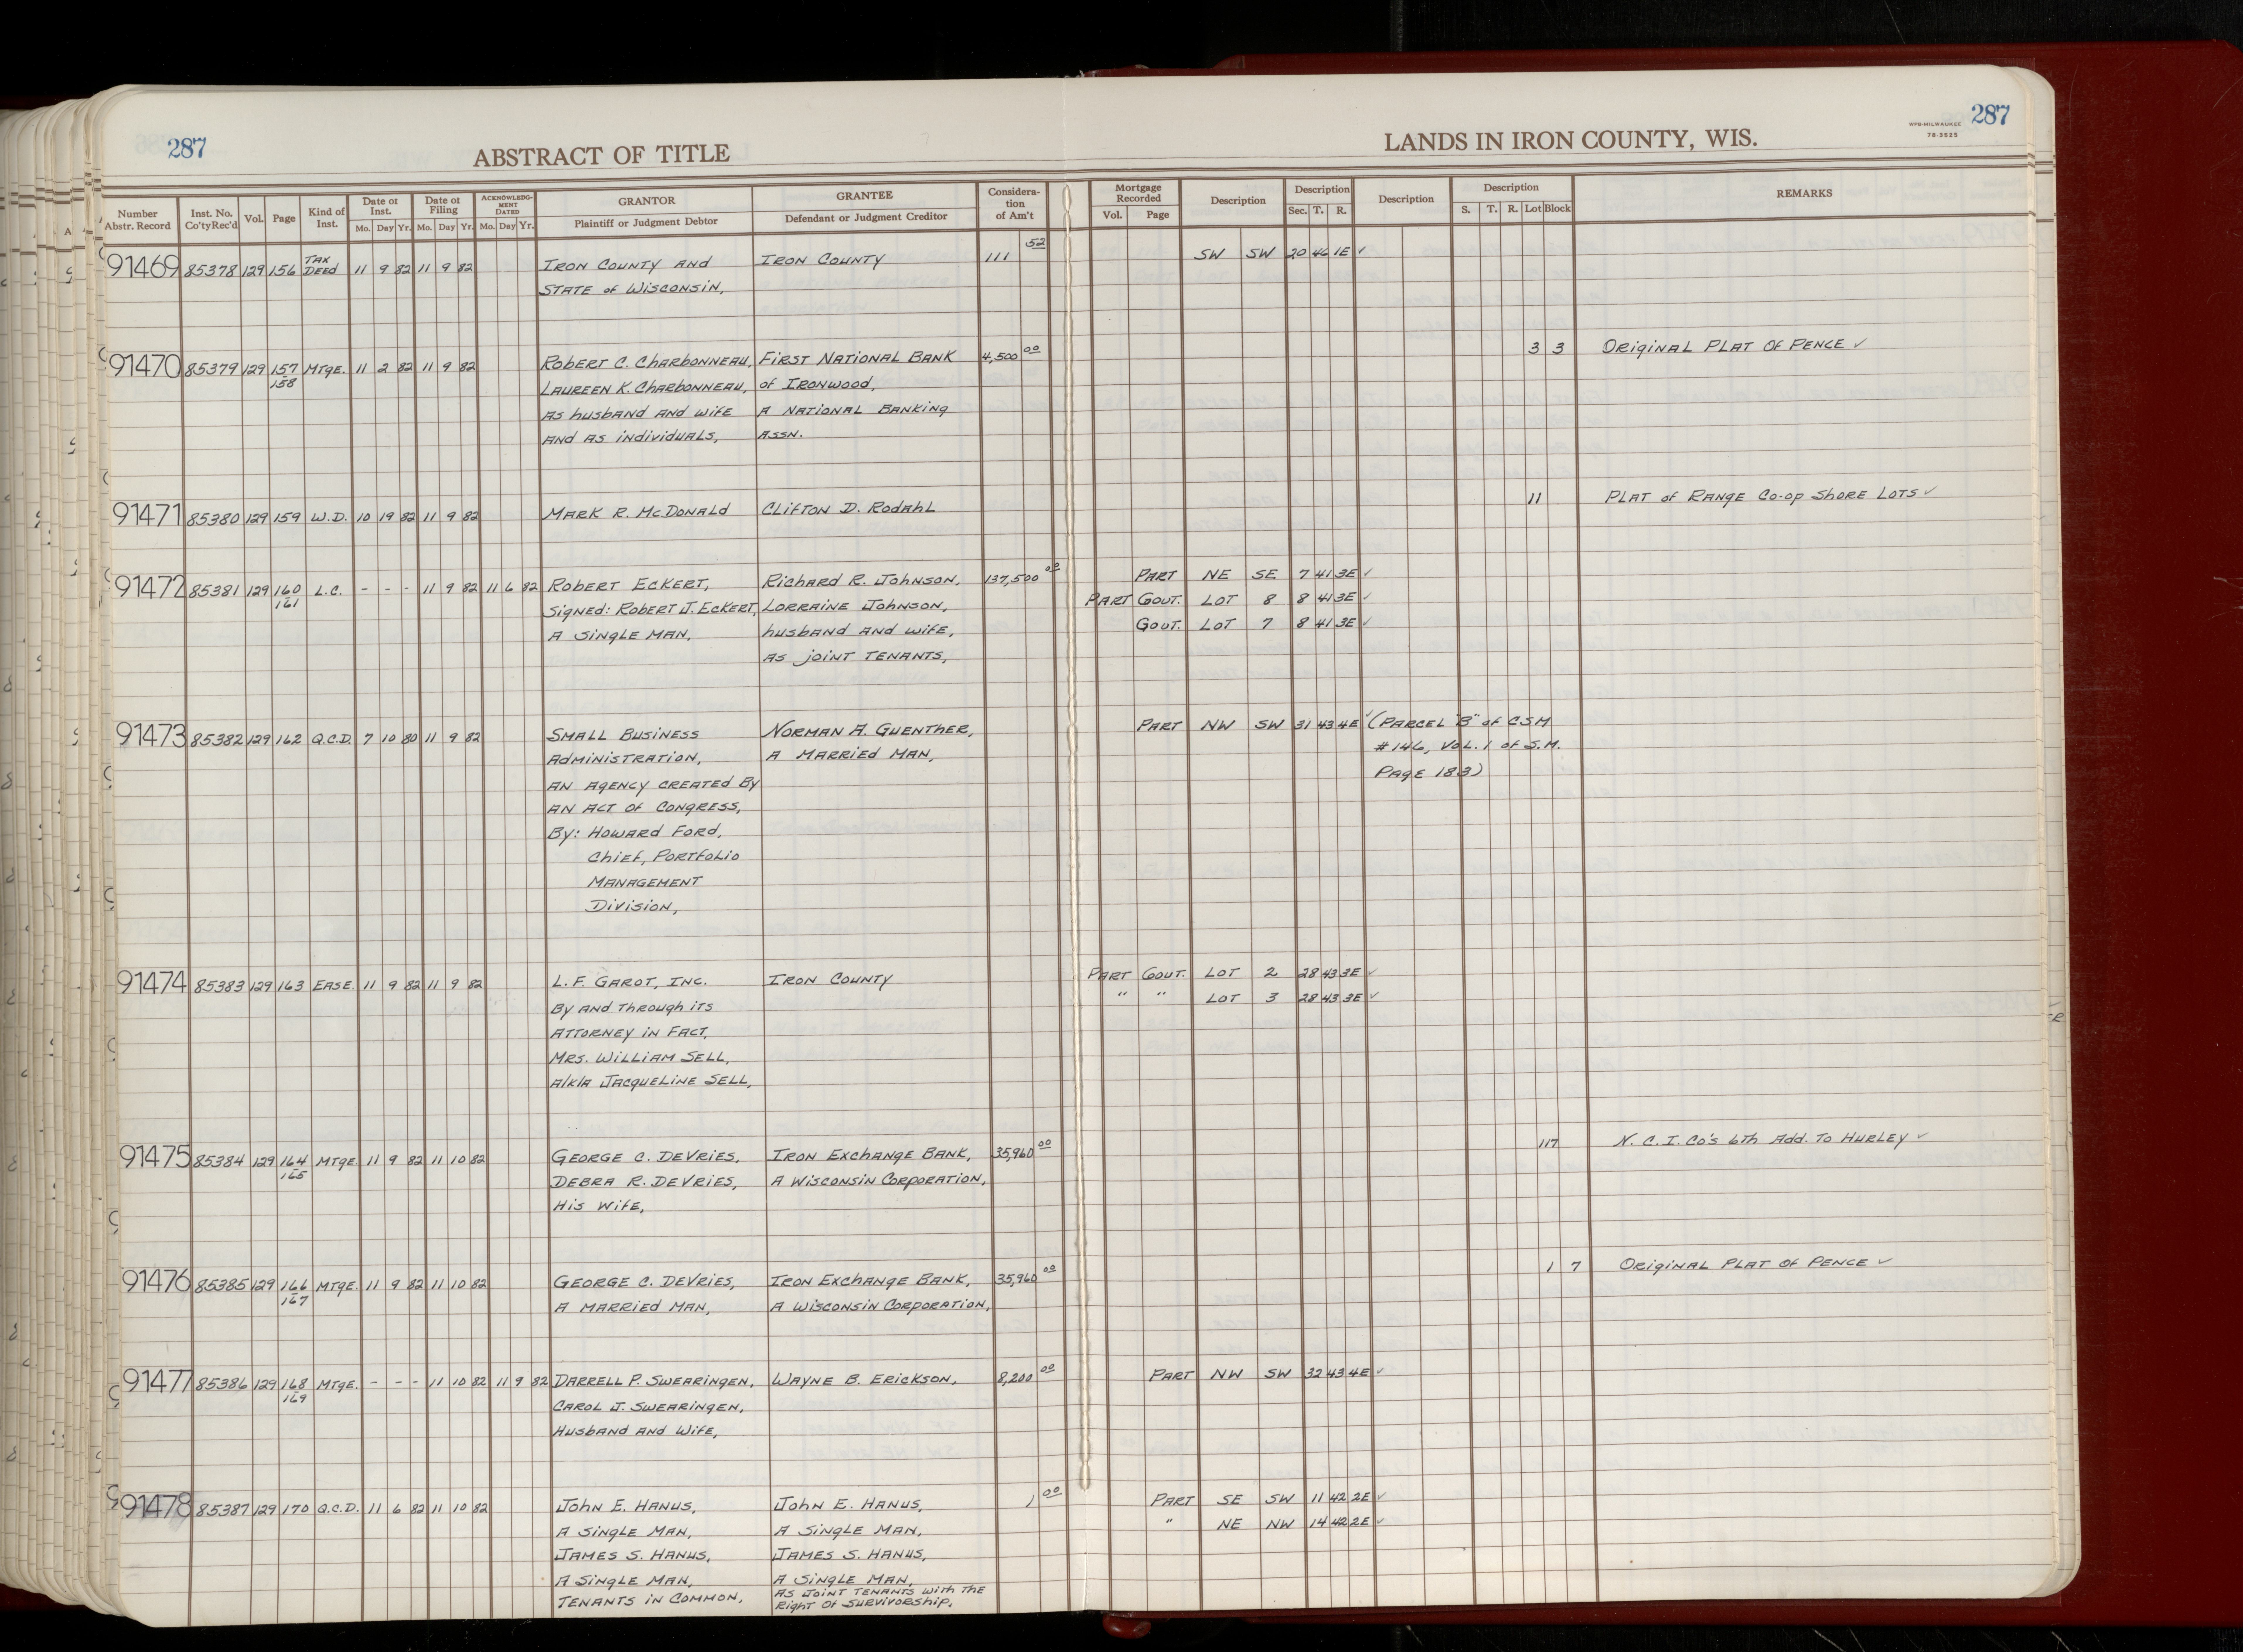 287
287
WPB-MILWAUKEE
78-3525
ABSTRACT OF TITLE
LANDS IN IRON COUNTY, WIS.
Number Abstr. Record Inst. No. Co'ty Rec'd Vol. Page Kind of Inst. Date of Inst. Mo. Day Yr. Date of Filing Mo. Day Yr. ACKNOWLEDGMENT DATED Mo. Day Yr. GRANTOR Plaintiff or Judgment Debtor GRANTEE Defendant or Judgment Creditor Consideration of Am't Mortgage Recorded Vol. Page Description Description Sec. T. R. Description Description S. T. R. Lot Block REMARKS
91469 85378 129 156 TAX DEED 11 9 82 11 9 82 IRON COUNTY AND IRON COUNTY 111 52 SW SW 20 46 1E ✓
STATE of WISCONSIN,
91470 85379 129 157 MTGE. 11 2 82 11 9 82 ROBERT C. CHARBONNEAU, FIRST NATIONAL BANK 4,500 00 3 3 ORIGINAL PLAT OF PENCE ✓
158 LAUREEN K. CHARBONNEAU, of IRONWOOD,
AS husband AND wife A NATIONAL BANKING
AND AS individuALS, ASSN.
91471 85380 129 159 W.D. 10 19 82 11 9 82 MARK R. McDONALD CLIFTON D. RODAHL 11 PLAT of RANGE CO-OP SHORE LOTS ✓
91472 85381 129 160 L.C. - - - 11 9 82 11 6 82 ROBERT ECKERT, RICHARD R. JOHNSON, 137,500 00 PART NE SE 7 41 3E ✓
161 Signed: ROBERT J. ECKERT, LORRAINE JOHNSON, PART GOVT. LOT 8 8 41 3E ✓
A SINGLE MAN, husband AND wife, GOVT. LOT 7 8 41 3E ✓
AS joint TENANTS,
91473 85382 129 162 Q.C.D. 7 10 80 11 9 82 SMALL BUSINESS NORMAN A. GUENTHER, PART NW SW 31 43 4E ✓ (PARCEL "B" of CSM
ADMINISTRATION, A MARRIED MAN, #146, VOL. 1 of S.M.
AN AGENCY CREATED BY PAGE 183)
AN ACT OF CONGRESS,
BY: HOWARD FORD,
CHIEF, PORTFOLIO
MANAGEMENT
DIVISION,
91474 85383 129 163 EASE. 11 9 82 11 9 82 L.F. GAROT, INC. IRON COUNTY PART GOVT. LOT 2 28 43 3E ✓
BY AND THROUGH ITS " " LOT 3 28 43 3E ✓
ATTORNEY IN FACT,
MRS. WILLIAM SELL,
A/K/A JACQUELINE SELL,
91475 85384 129 164 MTGE. 11 9 82 11 10 82 GEORGE C. DEVRIES, IRON EXCHANGE BANK, 35,960 00 117 N.C.I. CO'S 6th ADD. TO HURLEY ✓
165 DEBRA R. DEVRIES, A WISCONSIN CORPORATION,
HIS WIFE,
91476 85385 129 166 MTGE. 11 9 82 11 10 82 GEORGE C. DEVRIES, IRON EXCHANGE BANK, 35,960 00 1 7 ORIGINAL PLAT OF PENCE ✓
167 A MARRIED MAN, A WISCONSIN CORPORATION,
91477 85386 129 168 MTGE. - - - 11 10 82 11 9 82 DARRELL P. SWEARINGEN, WAYNE B. ERICKSON, 8,200 00 PART NW SW 32 43 4E ✓
169 CAROL J. SWEARINGEN,
HUSBAND AND WIFE,
91478 85387 129 170 Q.C.D. 11 6 82 11 10 82 JOHN E. HANUS, JOHN E. HANUS, 1 00 PART SE SW 11 42 2E ✓
A SINGLE MAN, A SINGLE MAN, " NE NW 14 42 2E ✓
JAMES S. HANUS, JAMES S. HANUS,
A SINGLE MAN, A SINGLE MAN,
TENANTS IN COMMON, AS JOINT TENANTS WITH THE
RIGHT OF SURVIVORSHIP,